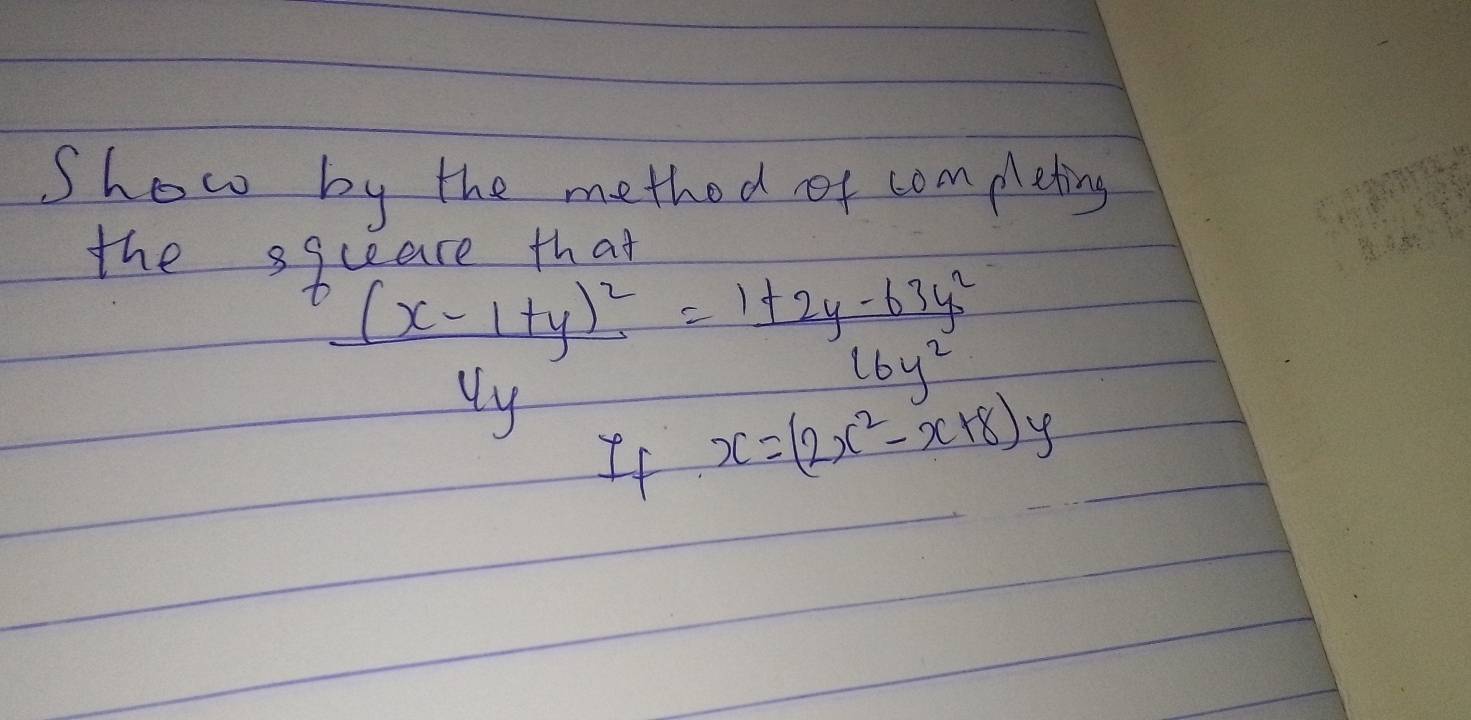 Show by the method of completing
the square that
(x-1+y)² / 4y = 1+2y-63y² / 16y²
If x=(2x²-x+8)y